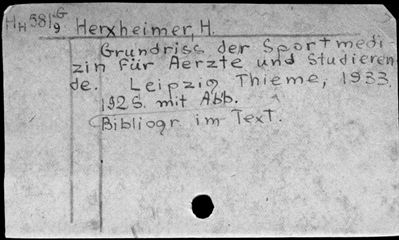 HH 581/9 G
Herxheimer, H.
Grundriss der Sportmedi-
zin für Aerzte und Studieren-
de. Leipzig Thieme, 1933.
192 S. mit Abb.
(Bibliogr. im Text.